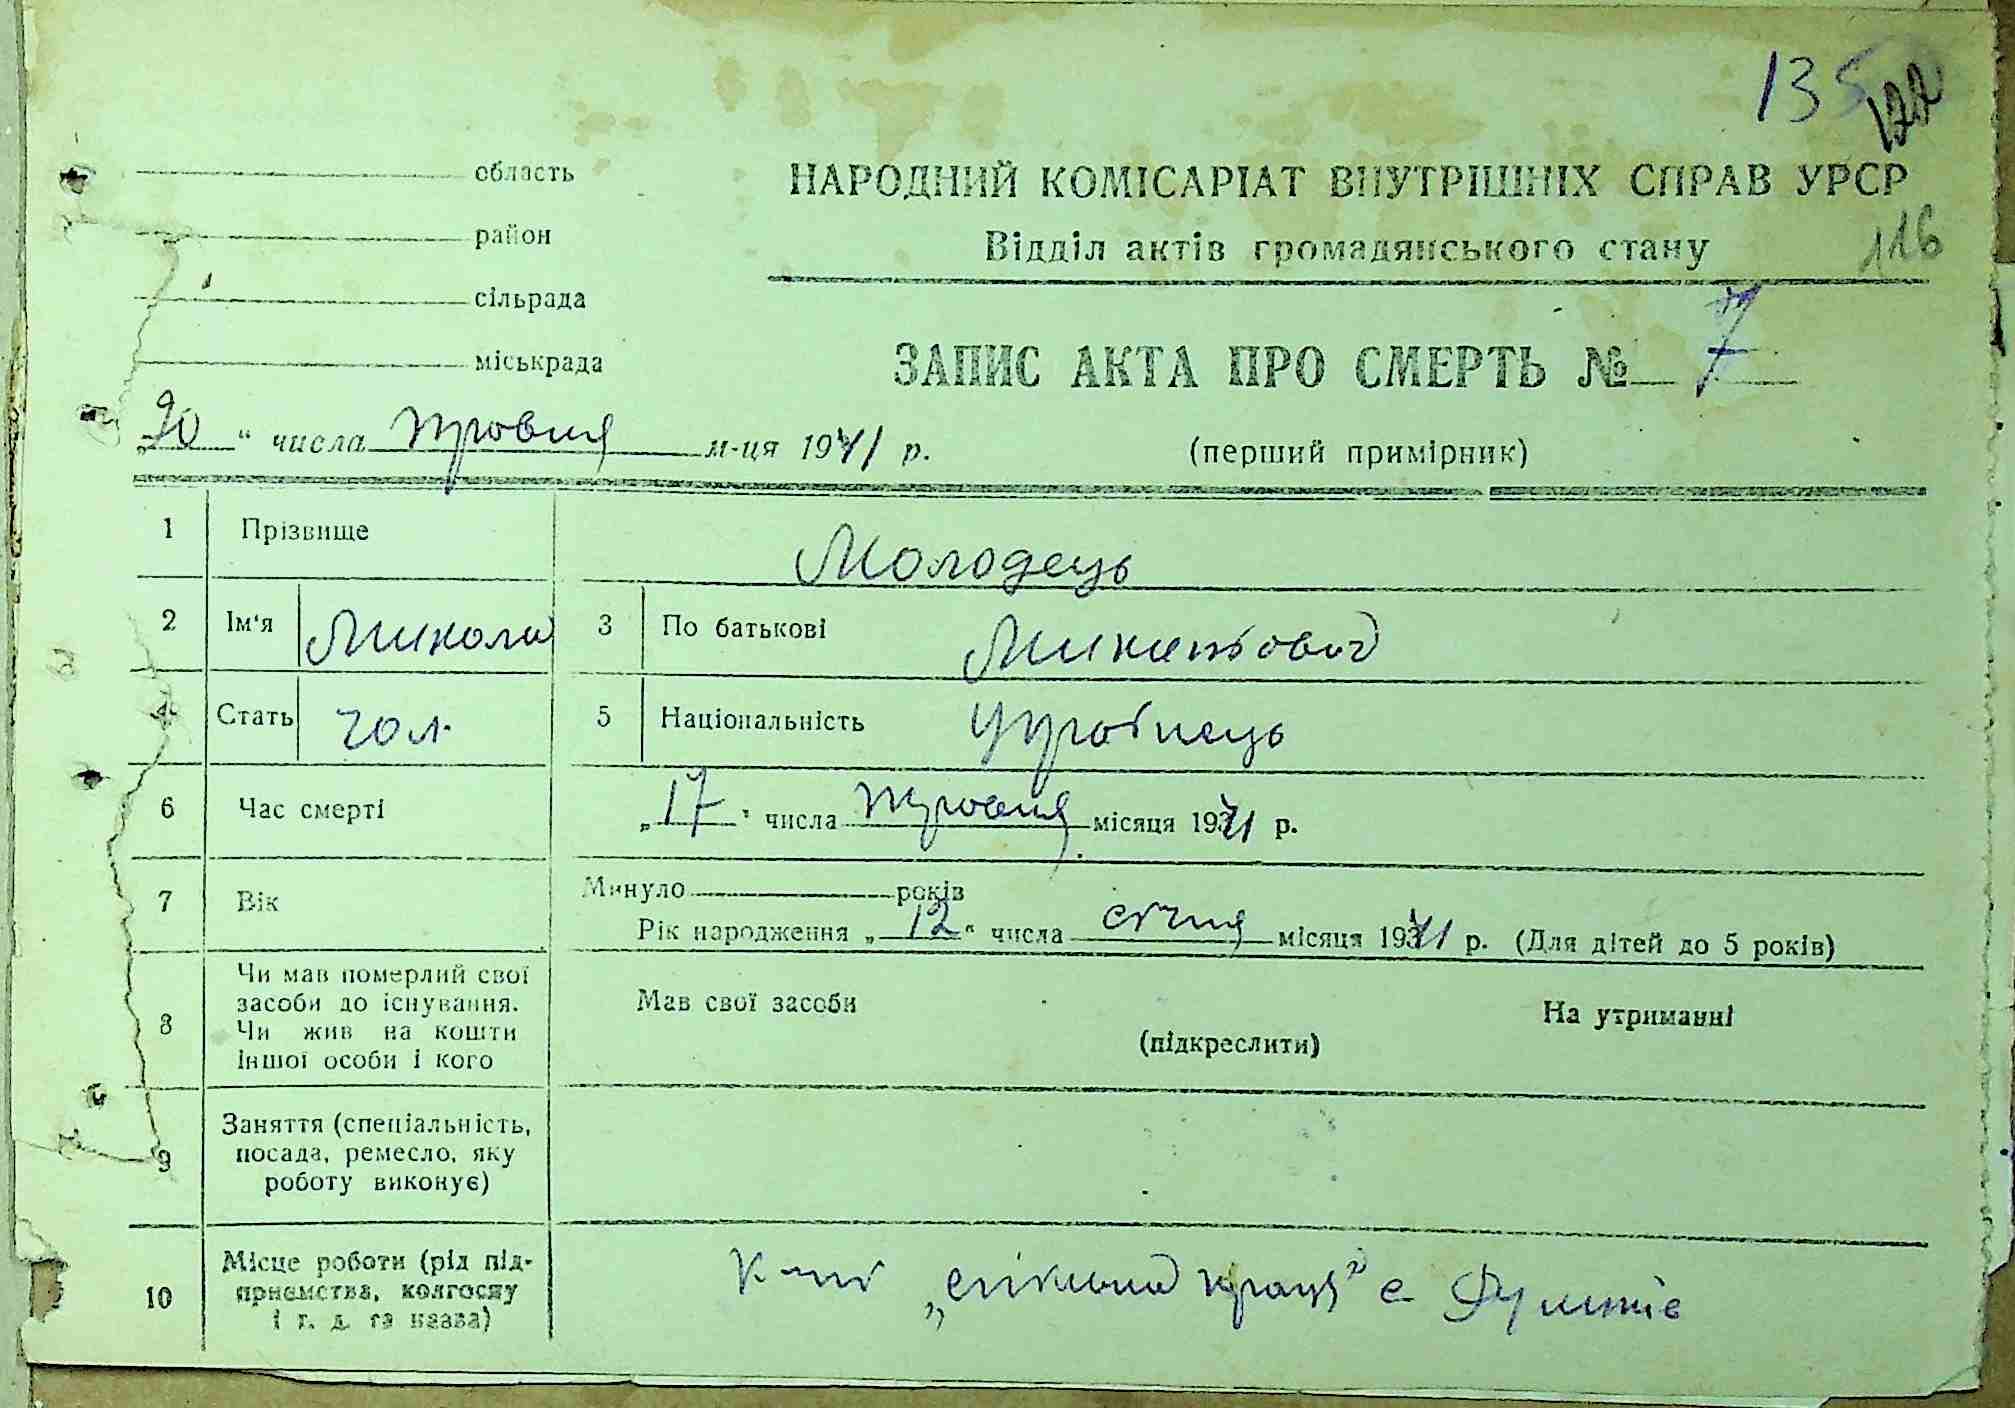 135
122
116
область
район
сільрада
міськрада
НАРОДНИЙ КОМІСАРІАТ ВНУТРІШНІХ СПРАВ УРСР
Відділ актів громадянського стану
ЗАПИС АКТА ПРО СМЕРТЬ № 7
„20“ числа травня м-ця 1941 р.
(перший примірник)
1 Прізвище Молодець
2 Ім'я Микола 3 По батькові
4 Стать чол. 5 Національність Українець
6 Час смерті „17“ числа травня місяця 1941 р.
7 Вік Минуло років
Рік народження „12“ числа січня місяця 1941 р. (Для дітей до 5 років)
8 Чи мав померлий свої
засоби до існування.
Чи жив на кошти
іншої особи і кого
Мав свої засоби
На утриманні
(підкреслити)
9 Заняття (спеціальність,
посада, ремесло, яку
роботу виконує)
10 Місце роботи (рід під-
приємства, колгоспу
і т. д. та назва)
„спільна праця“ с.